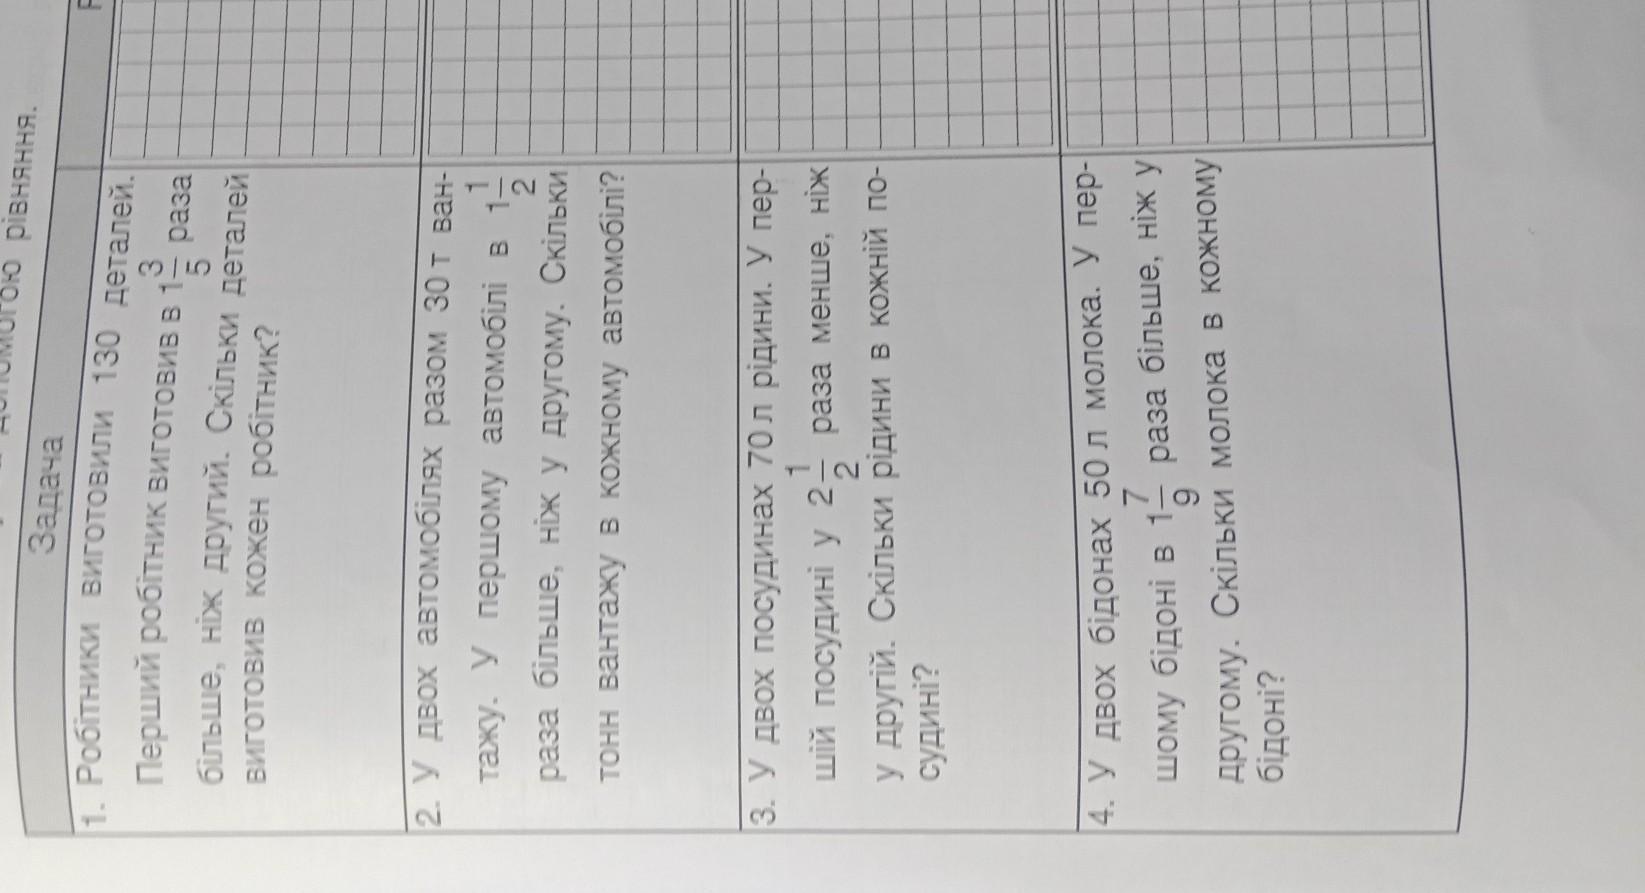 допомогою рівняння.
Задача
1. Робітники виготовили 130 деталей.
Перший робітник виготовив в 1 3/5 раза
більше, ніж другий. Скільки деталей
виготовив кожен робітник?
2. У двох автомобілях разом 30 т ван-
тажу. У першому автомобілі в 1 1/2
раза більше, ніж у другому. Скільки
тонн вантажу в кожному автомобілі?
3. У двох посудинах 70 л рідини. У пер-
шій посудині у 2 1/2 раза менше, ніж
у другій. Скільки рідини в кожній по-
судині?
4. У двох бідонах 50 л молока. У пер-
шому бідоні в 1 7/9 раза більше, ніж у
другому. Скільки молока в кожному
бідоні?